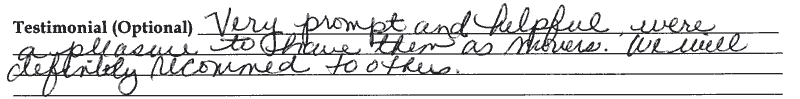 Testimonial (Optional) Very prompt and helpful were
a pleasure to have them as movers. We will
definitely recommed to others.